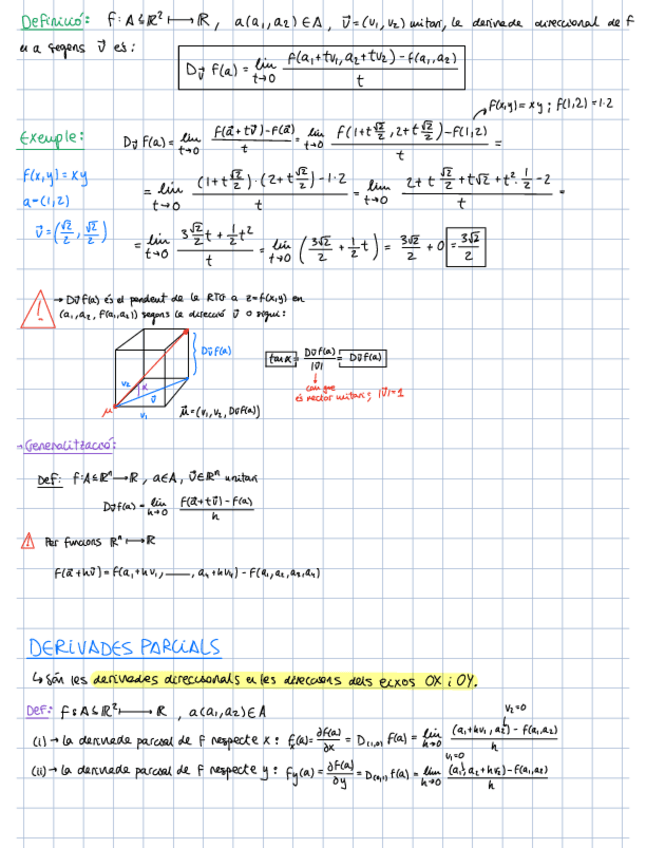 Definició: f: A⊆ℝ² ⟼ ℝ, a(a₁,a₂)∈A, v⃗=(v₁,v₂) unitari, la derivada direccional de f
en a segons v⃗ és:
D_v⃗ f(a) = lim_{t→0} (f(a₁+tv₁, a₂+tv₂) - f(a₁,a₂))/t
f(x,y)=xy ; f(1,2)=1·2
Exemple:
D_v⃗ f(a) = lim_{t→0} (f(a⃗+tv⃗)-f(a⃗))/t = lim_{t→0} (f(1+t √2/2, 2+t √2/2) - f(1,2))/t =
f(x,y)=xy
a=(1,2)
v⃗=(√2/2, √2/2)
= lim_{t→0} ((1+t √2/2)·(2+t √2/2)-1·2)/t = lim_{t→0} (2+t √2/2+t√2+t²·1/2-2)/t =
= lim_{t→0} (3√2/2 t + 1/2 t²)/t = lim_{t→0} (3√2/2 + 1/2 t) = 3√2/2 + 0 = 3√2/2
! → D_v⃗ f(a) és el pendent de la RTG a z=f(x,y) en
(a₁,a₂, f(a₁,a₂)) segons la direcció v⃗ o sigui:
D_v⃗ f(a)
tan α = D_v⃗ f(a)/|v⃗| = D_v⃗ f(a)
com que
és vector unitari, |v⃗|=1
v₂ α v⃗
μ v₁
μ⃗=(v₁,v₂, D_v⃗ f(a))
→ Generalització:
Def: f: A⊆ℝⁿ → ℝ, a∈A, v⃗∈ℝⁿ unitari
D_v⃗ f(a) = lim_{h→0} (f(a⃗+tv⃗) - f(a))/h
! Per funcions ℝⁿ ⟼ ℝ
DERIVADES PARCIALS
↳ Són les derivades direccionals en les direccions dels eixos OX i OY.
v₂=0
Def: f: A⊆ℝ² ⟼ ℝ, a(a₁,a₂)∈A
(i) → la derivada parcial de f respecte x: fₓ(a)= ∂f(a)/∂x = D_(1,0) f(a) = lim_{h→0} ((a₁+hv₁, a₂) - f(a₁,a₂))/h
v₁=0
(ii) → la derivada parcial de f respecte y: f_y(a)= ∂f(a)/∂y = D_(0,1) f(a) = lim_{h→0} ((a₁, a₂+hv₂) - f(a₁,a₂))/h